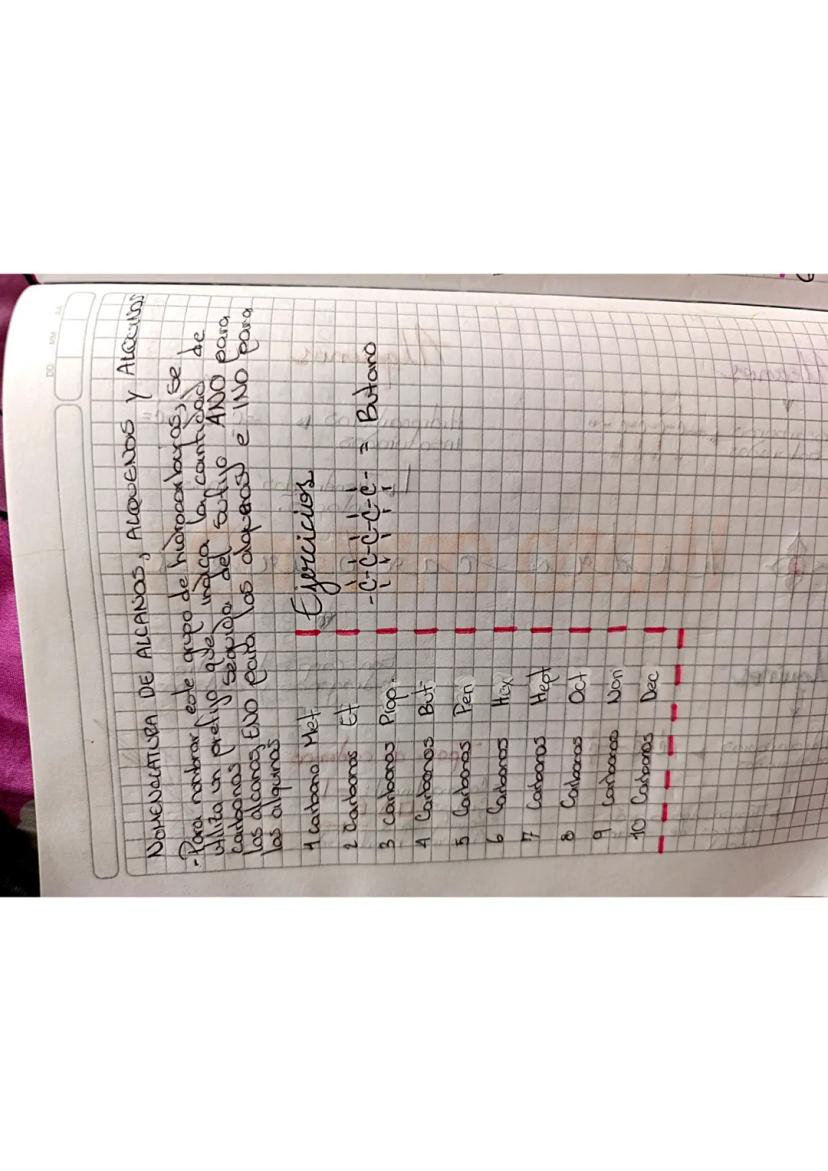 NOMENCLATURA DE ALCANOS, ALQUENOS Y ALQUINOS
-Para nombrar este grupo de hidrocarburos, se
utiliza un prefijo que indica la cantidad de
carbonos seguida del sufijo ANO para
los alcanos, ENO para los alquenos e INO para
los alquinos
1 carbono Met
2 Carbonos Et
3 Carbonos Prop.
4 Carbonos But.
5 Carbonos Pen
6 Carbonos Hex
7 Carbonos Hept
8 Carbonos Oct
9 Carbonos Non
10 Carbonos Dec
Ejercicios
-C-C-C-C-C- = Butano
DD MM AA